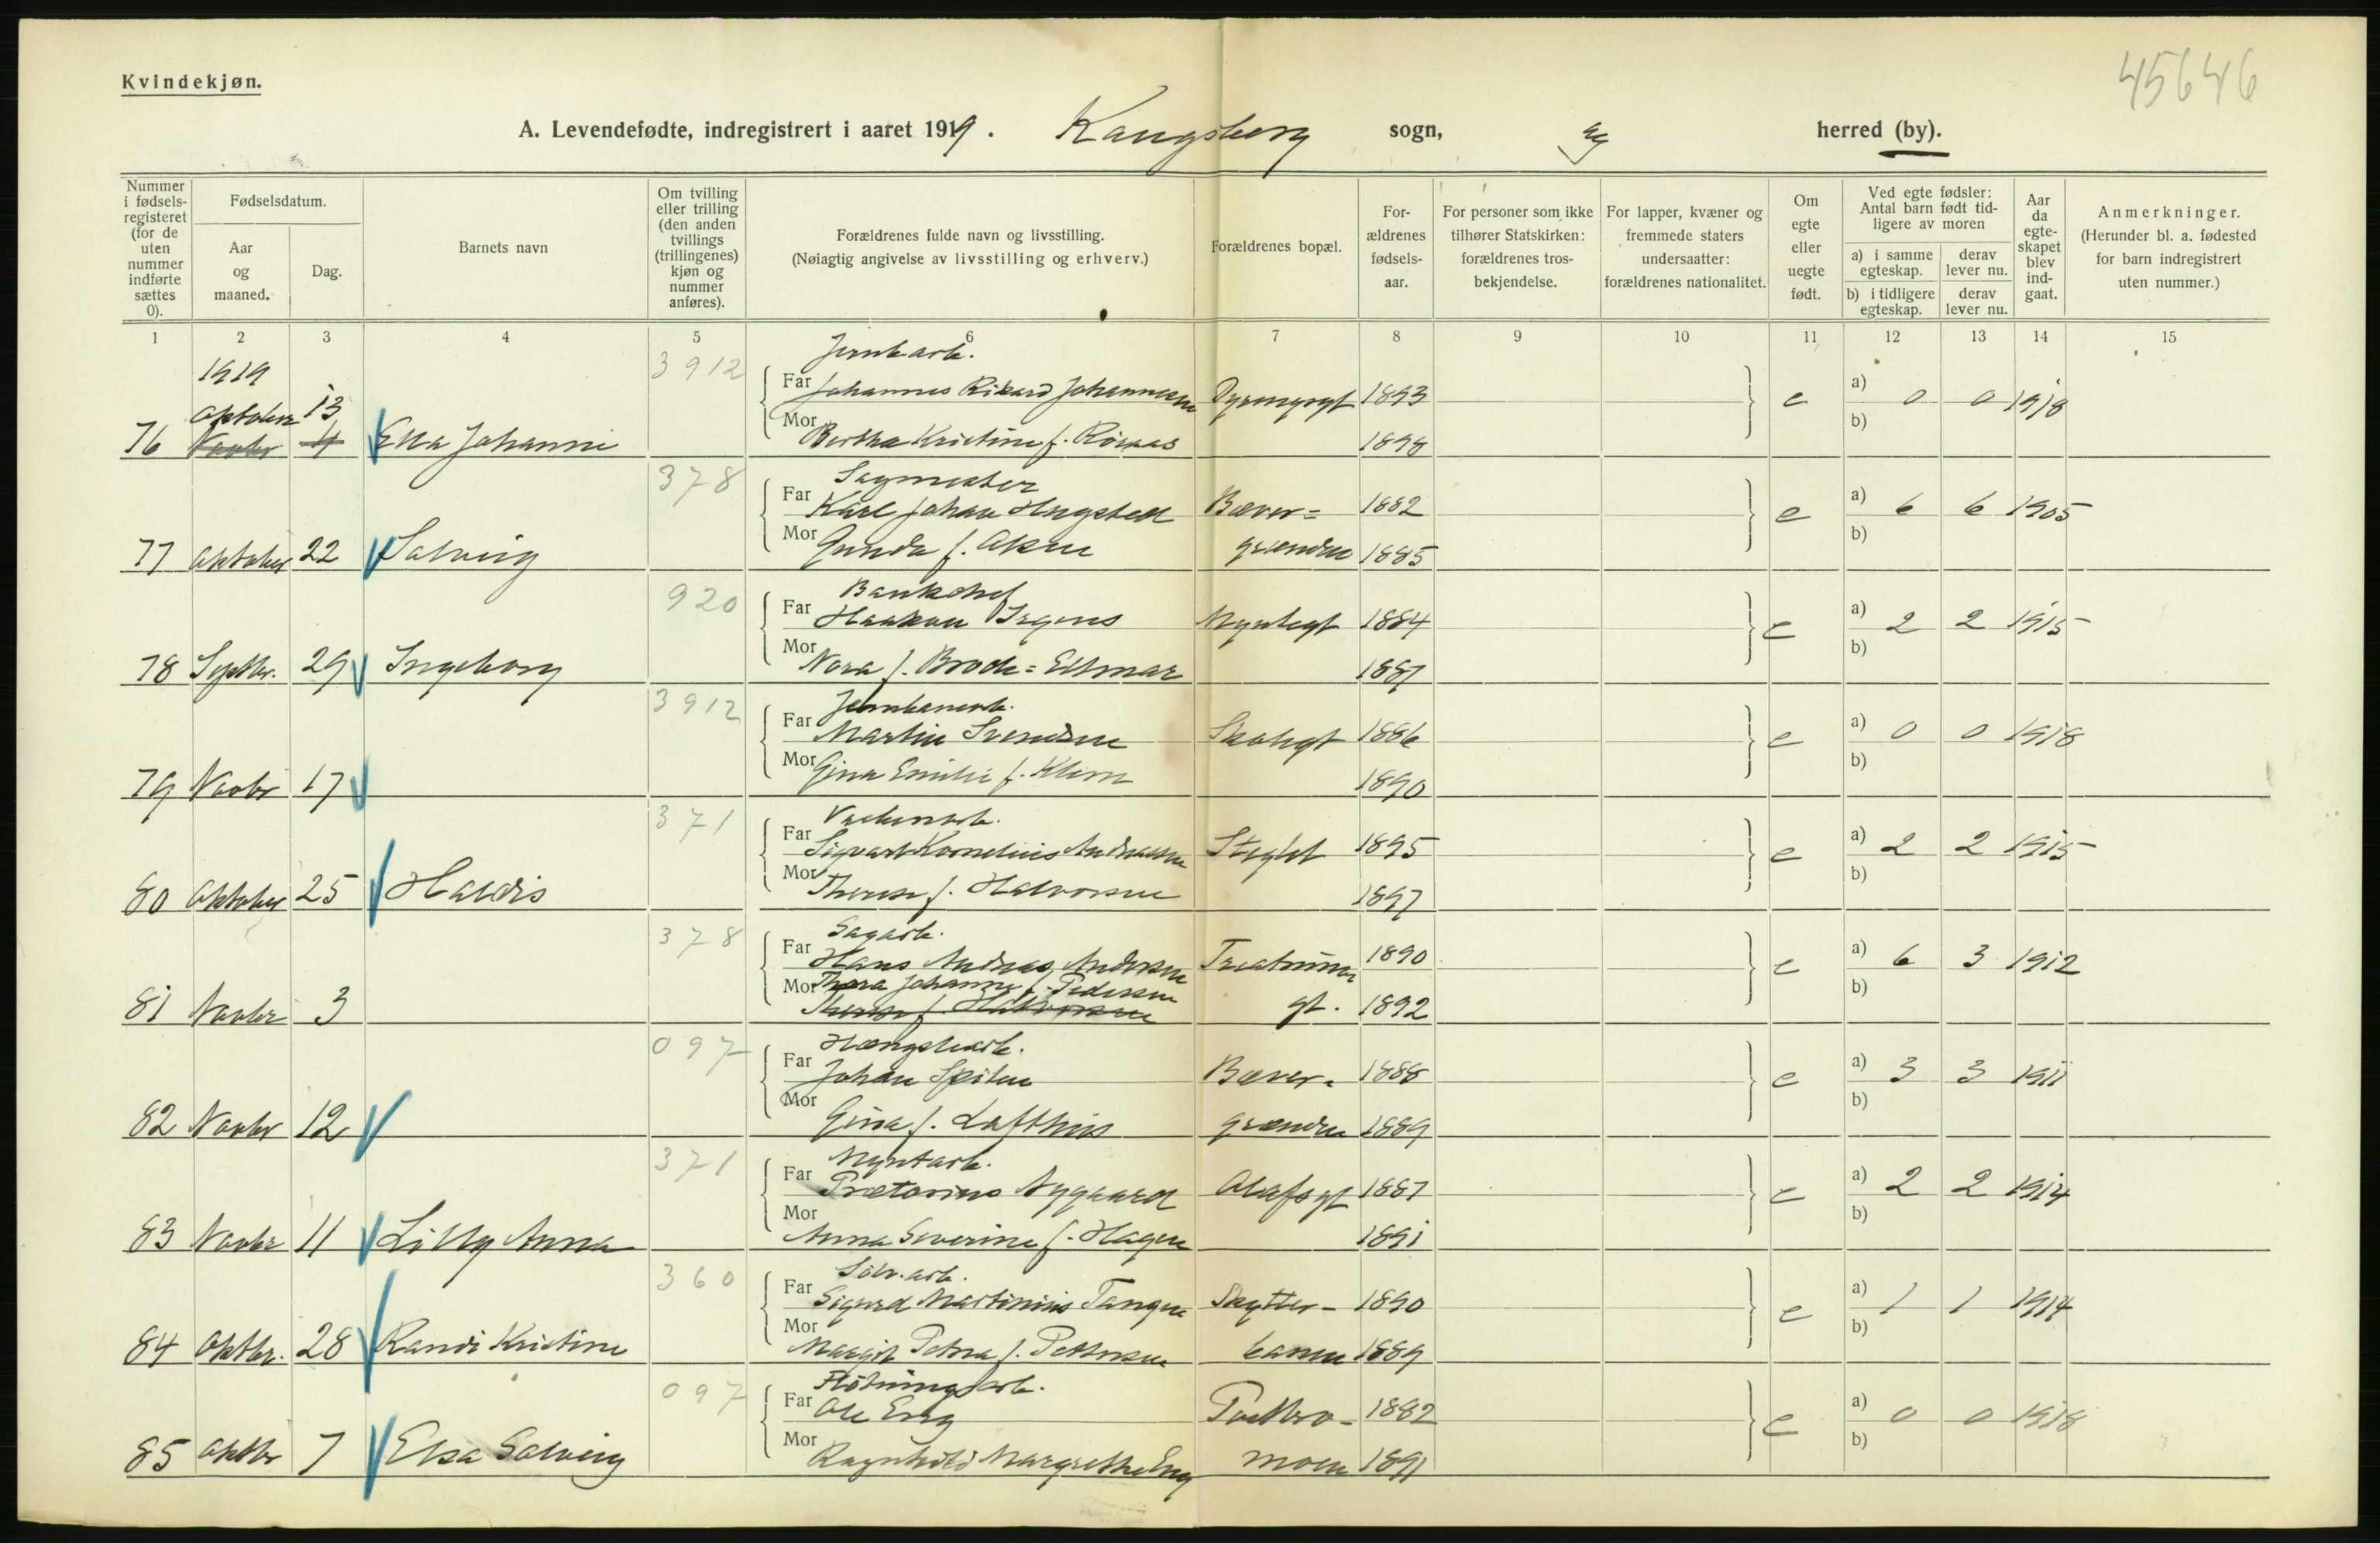 45646
Kvindekjøn.
A. Levendefødte, indregistrert i aaret 1919. Kongsberg sogn, herred (by).
Nummer i fødsels-registeret (for de uten nummer indførte sættes 0).
Fødselsdatum.
Aar og maaned.
Dag.
Barnets navn
Om tvilling eller trilling (den anden tvillings (trillingenes) kjøn og nummer anføres).
Forældrenes fulde navn og livsstilling.
(Nøiagtig angivelse av livsstilling og erhverv.)
Forældrenes bopæl.
For-ældrenes fødsels-aar.
For personer som ikke tilhører Statskirken: forældrenes tros-bekjendelse.
For lapper, kvæner og fremmede staters undersaatter: forældrenes nationalitet.
Om egte eller uegte født.
Ved egte fødsler: Antal barn født tid-ligere av moren
a) i samme egteskap. derav lever nu.
b) i tidligere egteskap. derav lever nu.
Aar da egte-skapet blev ind-gaat.
Anmerkninger.
(Herunder bl. a. fødested for barn indregistrert uten nummer.)
1 2 3 4 5 6 7 8 9 10 11 12 13 14 15
1919 3912 Jernbarb.
Oktober 13 Far Johannes Rikard Johannesen Dyrmyrgt 1893 e a) 0 0 1918
76 Novbr 4 Ella Johanne Mor Bertha Kristine f. 1898 b)
378 Sagmester
Far Karl Johan Bæver= 1882 e a) 6 6 1905
77 Oktober 22 Solveig Mor Gunda f. Olsen grænden 1885 b)
920 Bankchef
Far Haakon Irgens Myntgt 1884 e a) 2 2 1915
78 Septbr. 29 Ingeborg Mor Nora f. Brock=Eltmar 1887 b)
3912 Jernbanearb.
Far Martin Svendsen Skolegt 1886 e a) 0 0 1918
79 Novbr 17 Mor Gina Emilie f. Klem 1890 b)
371
Far Sigvart Kornelius Andreassen Steglet 1895 e a) 2 2 1915
80 Oktober 25 Haldis Mor Therese f. Halvorsen 1897 b)
378 Sagarb.
Far Hans Andreas Andersen Treatmin 1890 e a) 6 3 1912
Mor Thora Johanne f. Pedersen
81 Novbr 3 Therese f. Halvorsen gt. 1892 b)
097
Far Johan Spiten Bæver- 1888 e a) 3 3 1911
82 Novbr 12 Mor Gina f. Lofthus grænden 1889 b)
371 Myntarb.
Far Prætorius Nygaard Olafsgt 1887 e a) 2 2 1914
83 Novbr 11 Lilly Anna Mor Anna Severine f. Hagen 1891 b)
360 Sölv.arb.
Far Sigurd Martinius Tangen Skytter- 1890 e a) 1 1 1914
84 Oktbr. 28 Randi Kristine Mor Margit Petra f. Pettersen banen 1889 b)
097 Flötningsarb.
Far Ole Eng Postbro- 1882 e a) 0 0 1918
85 Oktbr 7 Elsa Solveig Mor Ragnhild Margrethe Eng moen 1891 b)